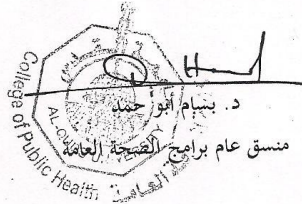 د. بسام أبو حمد
منسق عام برامج الصحة العامة
College of Public Health